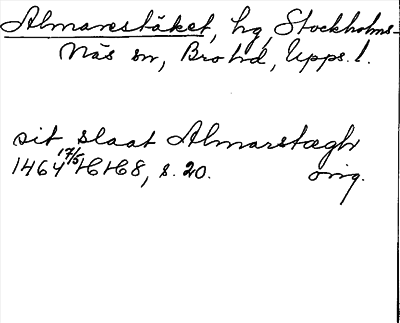 Almarestäket, hg, Stockholms-
Näs sn, Bro hd, Upps. l.
sit slaat Almarstægh
1464 17/5 HH8, s. 20. orig.